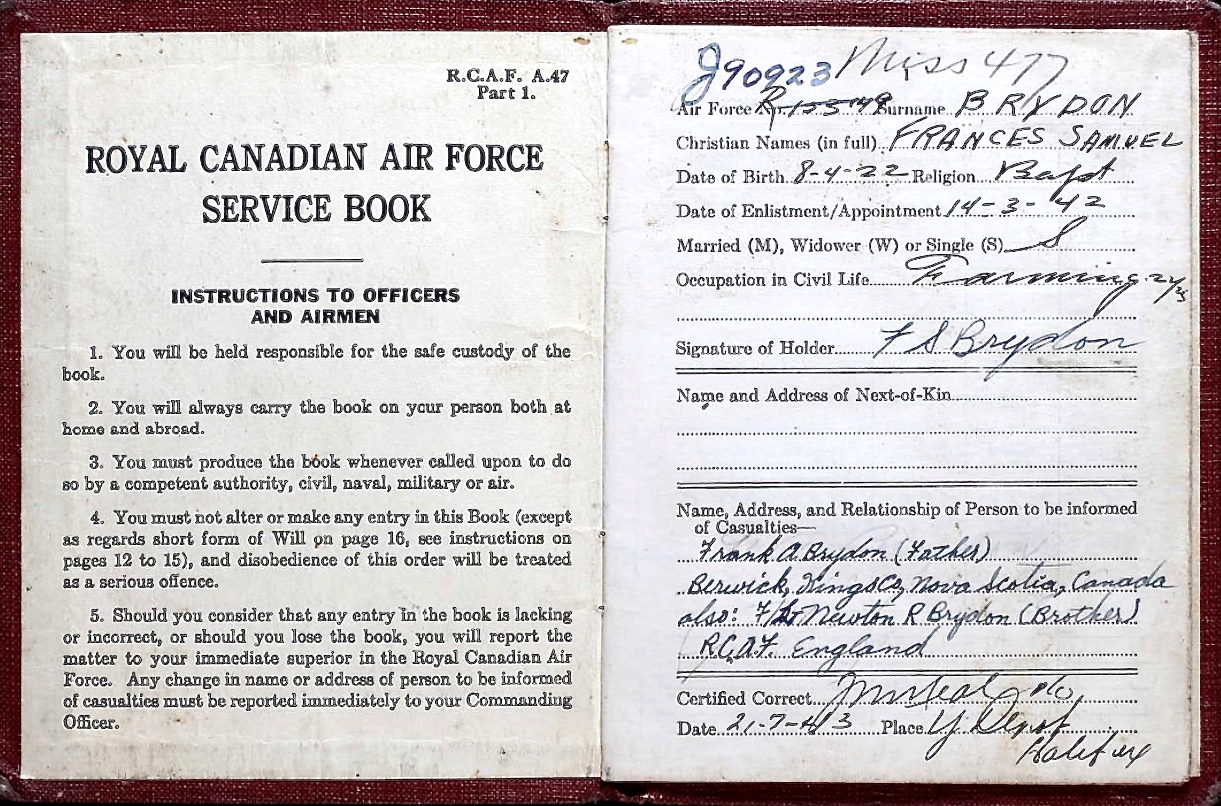 R.C.A.F. A.47
Part 1.
ROYAL CANADIAN AIR FORCE
SERVICE BOOK
INSTRUCTIONS TO OFFICERS
AND AIRMEN
1. You will be held responsible for the safe custody of the
book.
2. You will always carry the book on your person both at
home and abroad.
3. You must produce the book whenever called upon to do
so by a competent authority, civil, naval, military or air.
4. You must not alter or make any entry in this Book (except
as regards short form of Will on page 16, see instructions on
pages 12 to 15), and disobedience of this order will be treated
as a serious offence.
5. Should you consider that any entry in the book is lacking
or incorrect, or should you lose the book, you will report the
matter to your immediate superior in the Royal Canadian Air
Force. Any change in name or address of person to be informed
of casualties must be reported immediately to your Commanding
Officer.
J90923 Miss 477
Air Force No. Surname BRYDON
Christian Names (in full) FRANCES SAMUEL
Date of Birth 8-4-22 Religion Bapt
Date of Enlistment/Appointment 14-3-42
Married (M), Widower (W) or Single (S) S
Occupation in Civil Life Farming
Signature of Holder F S Brydon
Name and Address of Next-of-Kin
Name, Address, and Relationship of Person to be informed
of Casualties—
Frank A Brydon (Father)
Berwick, Kings Co, Nova Scotia, Canada
also: Newton R Brydon (Brother)
R.C.A.F. England
Certified Correct
Date 21-7-43 Place Y Depot
Halifax